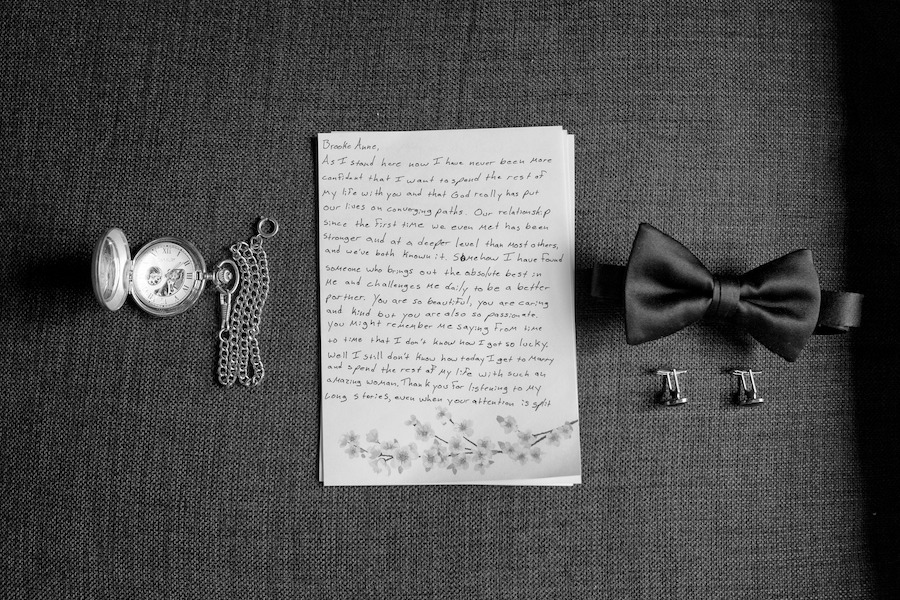 Brooke Anne,
As I stand here now I have never been more
confident that I want to spend the rest of
my life with you and that God really has put
our lives on converging paths. Our relationship
since the first time we even met has been
stronger and at a deeper level than most others,
and we've both known it. Somehow I have found
someone who brings out the absolute best in
me and challenges me daily to be a better
partner. You are so beautiful, you are caring
and kind but you are also so passionate.
you might remember me saying from time
to time that I don't know how I got so lucky.
Well I still don't know how today I get to marry
and spend the rest of my life with such an
amazing woman. Thank you for listening to my
long stories, even when your attention is split